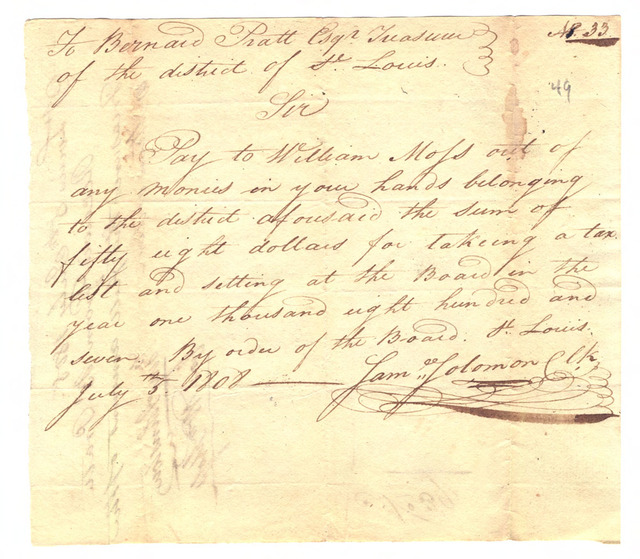 To Bernard Pratt Esqr. Treasurer
of the district of St. Louis.
No. 33
49
Sir
Pay to William Moss out of
any monies in your hands belonging
to the district aforesaid the sum of
fifty eight dollars for takeing a tax
list and setting at the Board in the
year one thousand eight hundred and
seven. By order of the Board. St. Louis.
July 5th. 1808
Saml. Solomon Clk.